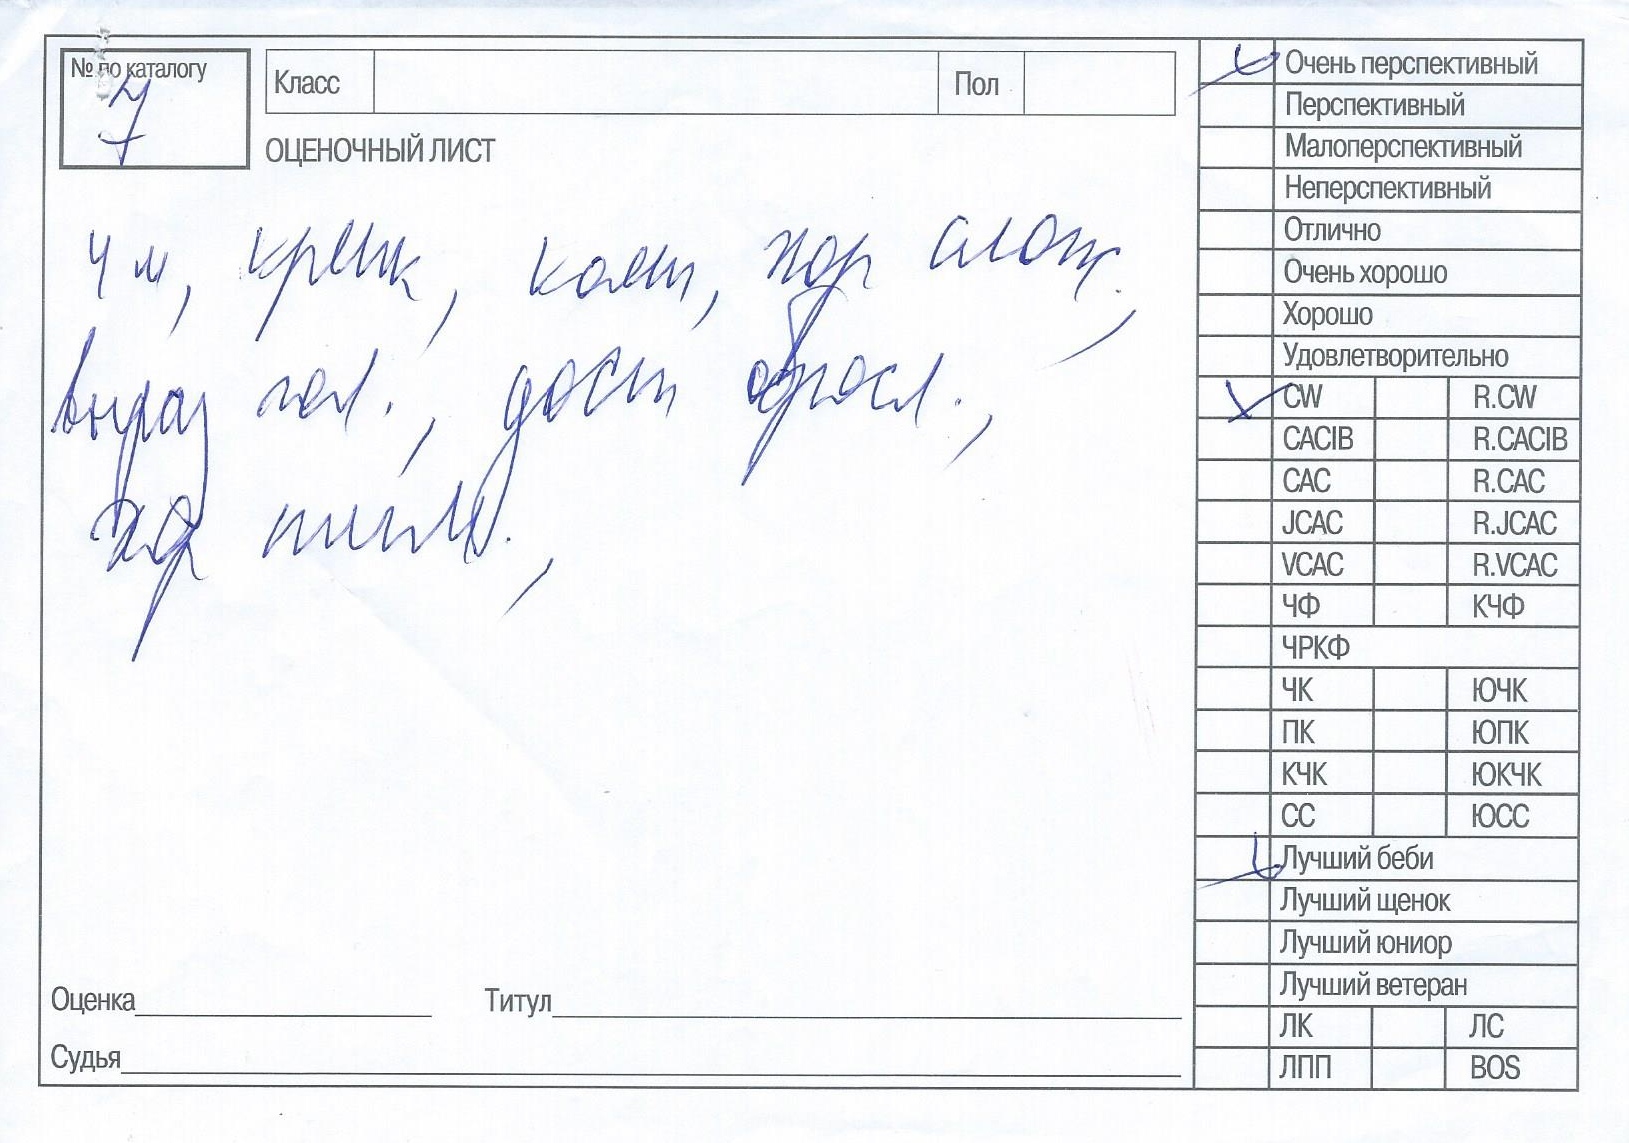 № по каталогу
7
Класс
Пол
ОЦЕНОЧНЫЙ ЛИСТ
4 м, крепк, комп, хор слож.,
выраз гол., дост обросл.,
хор пигм.,
Оценка
Титул
Судья
Очень перспективный
Перспективный
Малоперспективный
Неперспективный
Отлично
Очень хорошо
Хорошо
Удовлетворительно
CW R.CW
CACIB R.CACIB
CAC R.CAC
JCAC R.JCAC
VCAC R.VCAC
ЧФ КЧФ
ЧРКФ
ЧК ЮЧК
ПК ЮПК
КЧК ЮКЧК
СС ЮСС
Лучший беби
Лучший щенок
Лучший юниор
Лучший ветеран
ЛК ЛС
ЛПП BOS